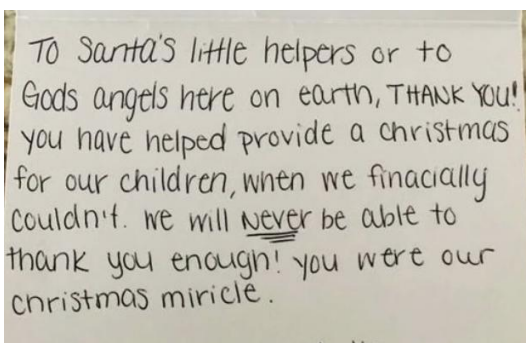 To Santa's little helpers or to
Gods angels here on earth, THANK YOU!
you have helped provide a christmas
for our children, when we finacially
couldn't. we will never be able to
thank you enough! you were our
christmas miricle.